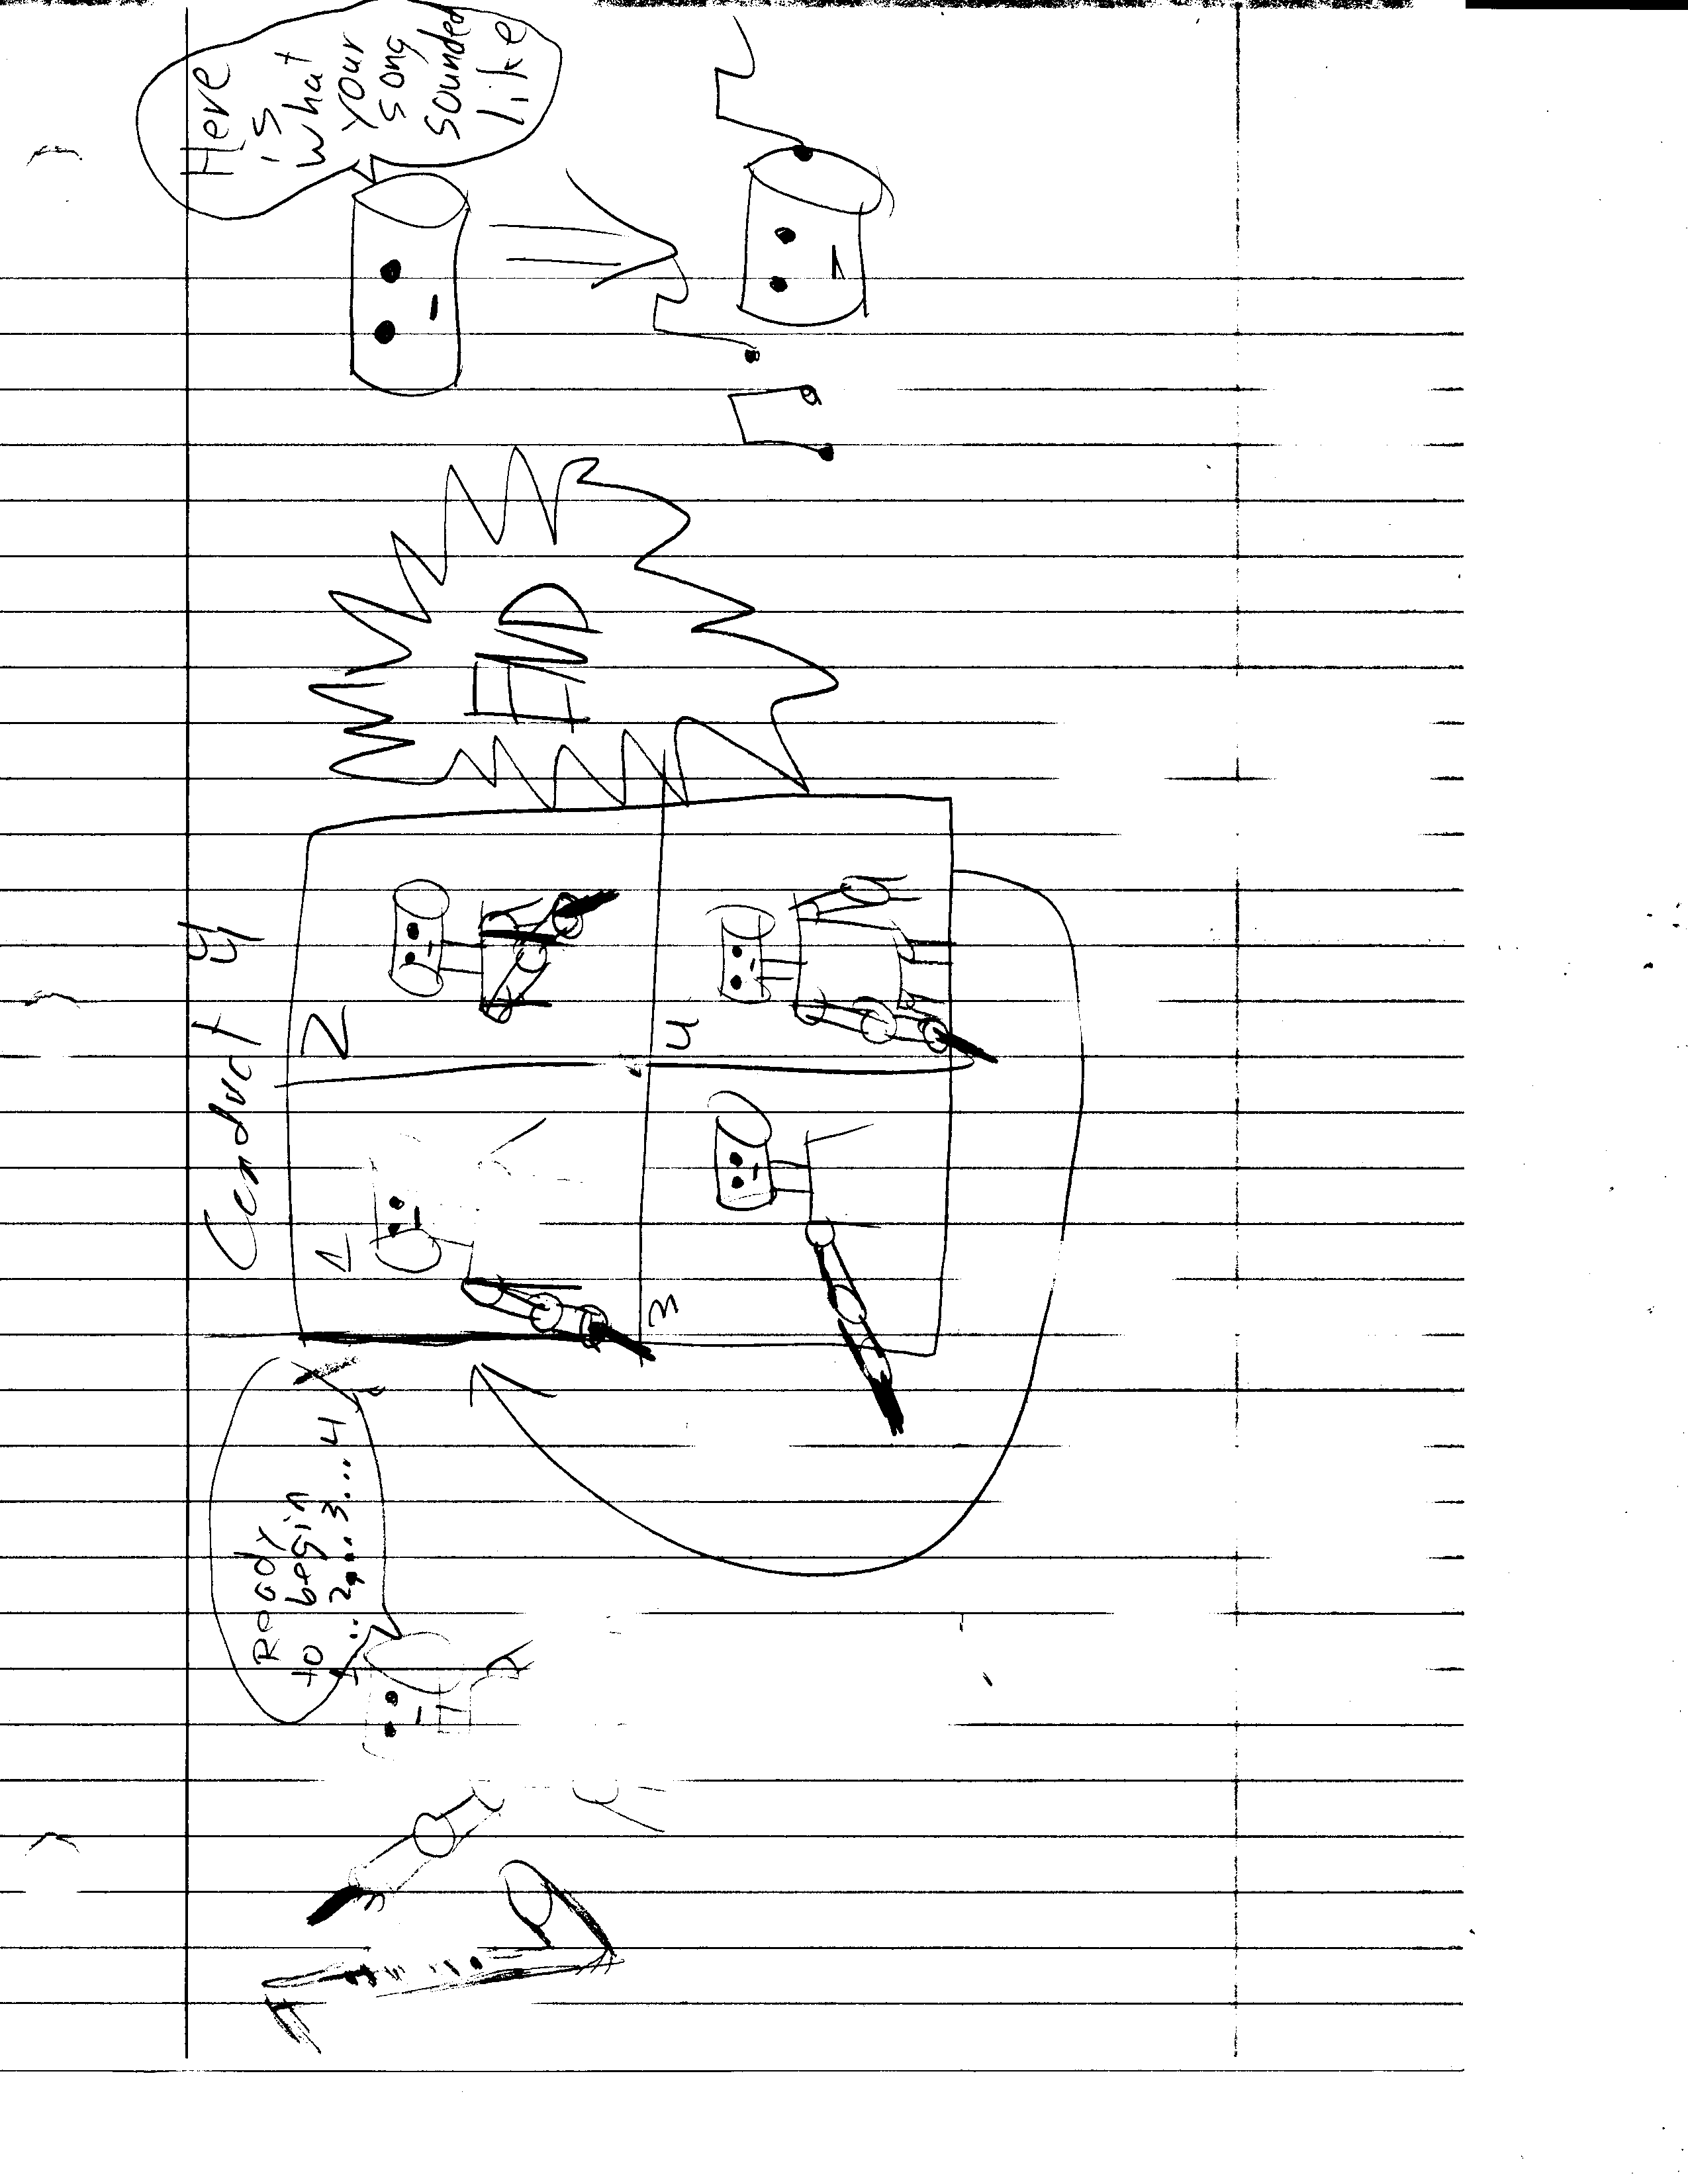 Ready
to begin
1...2...3...4
Conduct 4/4
1
2
3
4
END
Here
is
what
your
song
sounded
like